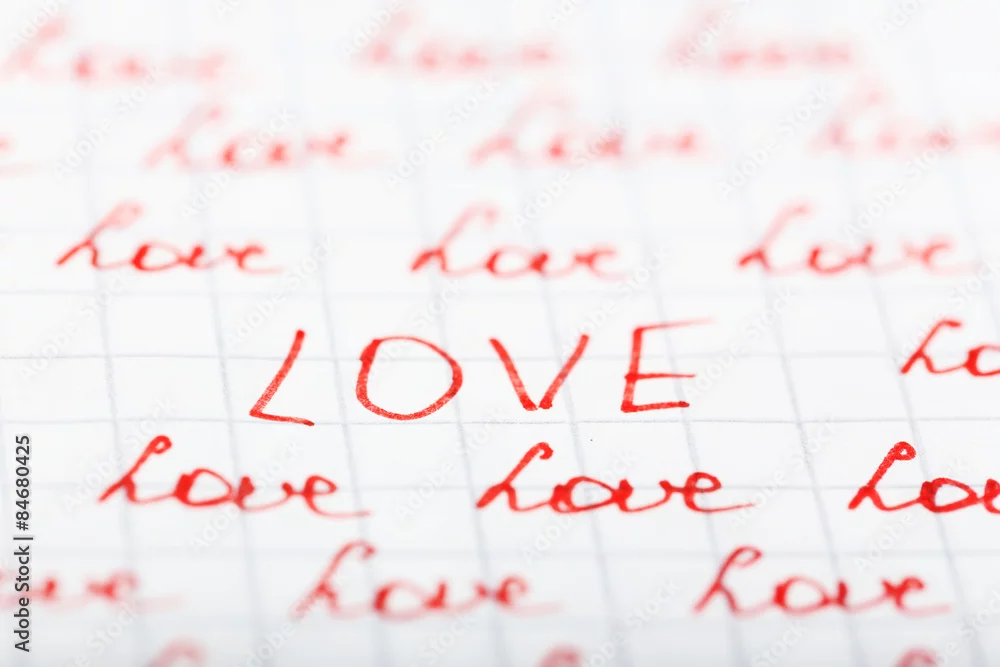 Love Love Love
Love Love Love
Love Love Love
LOVE Lo
Love Love Lov
ve Love Love
Adobe Stock | #84680425